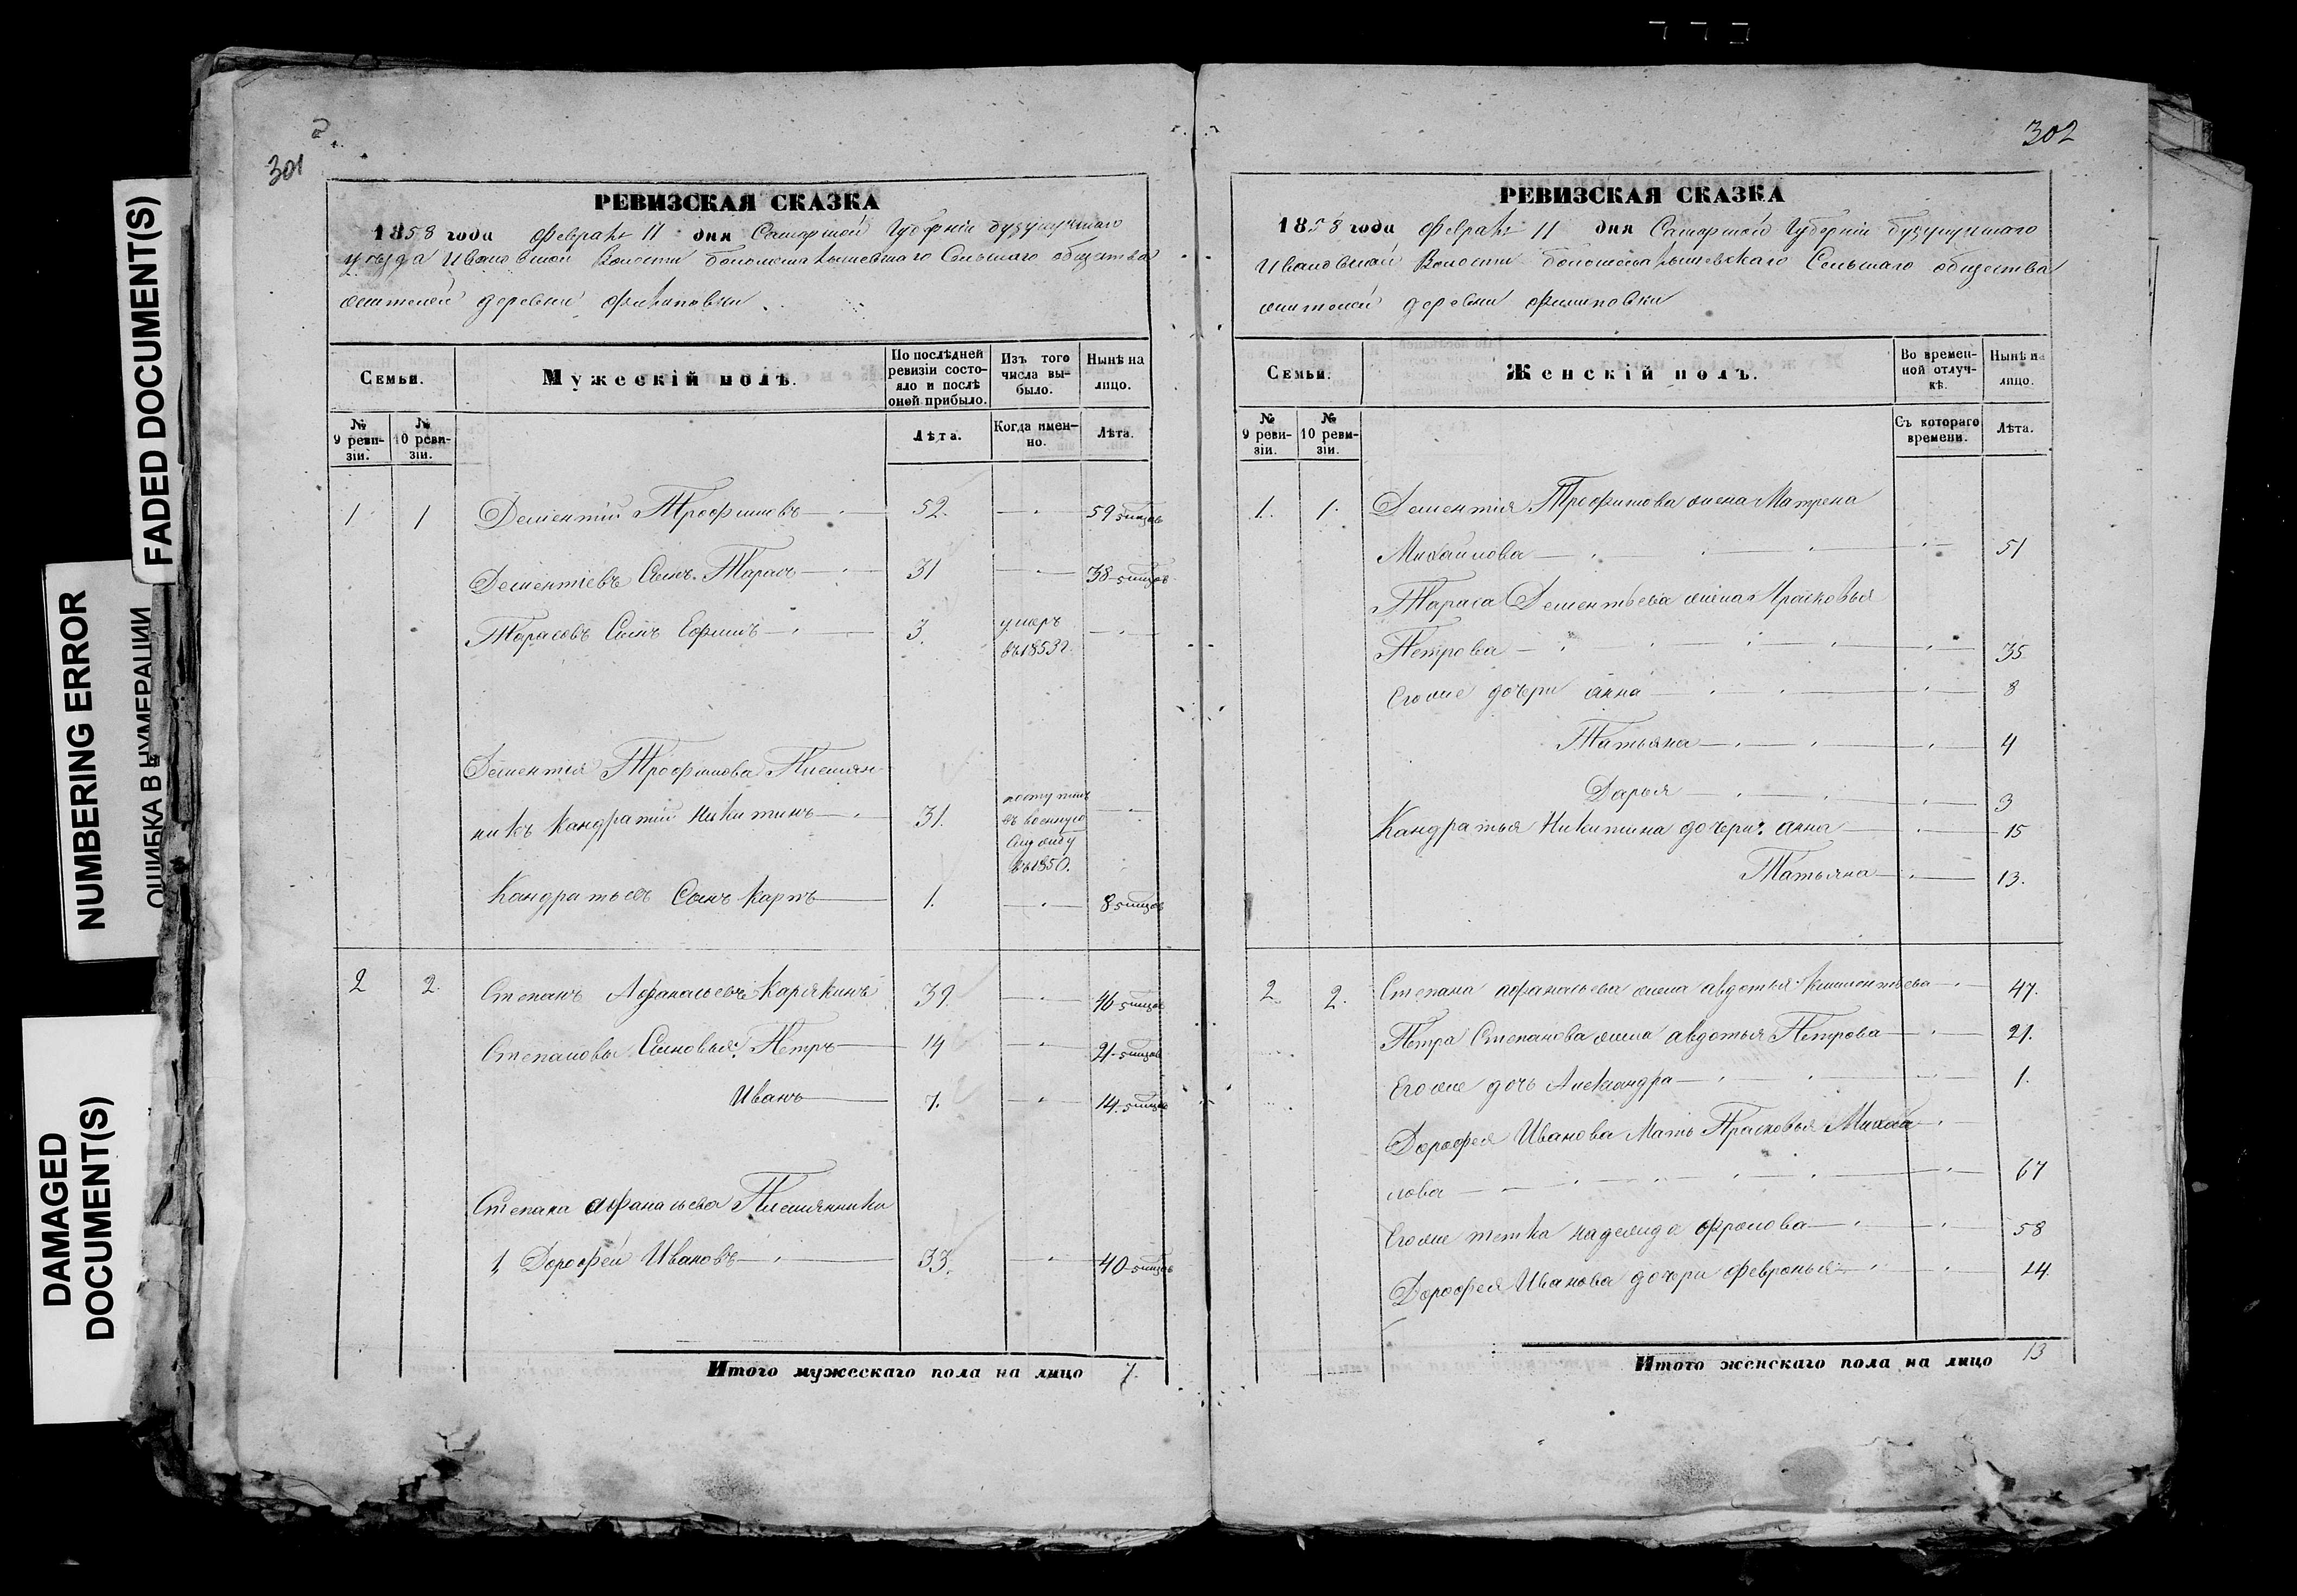 FADED DOCUMENT(S)
NUMBERING ERROR
ОШИБКА В НУМЕРАЦИИ
DAMAGED
DOCUMENT(S)
301
РЕВИЗСКАЯ СКАЗКА
1858 года февраля 11 дня Самарской Губерніи бузулукскаго
уѣзда Ивановской Волости Сельскаго общества
жителей деревни филиповки
Семьи.
Мужескій полъ.
По послѣдней ревизіи состояло и послѣ оной прибыло.
Изъ того числа выбыло.
Нынѣ на лицо.
№ 9 ревизіи.
№ 10 ревизіи.
Лѣта.
Когда именно.
Лѣта.
1 1 Дементій Трофимовъ 52. 59
Дементіевъ Сынъ Тарасъ 31 38
Тарасовъ Сынъ Ефимъ 3. умеръ въ 1853 г.
Дементія Трофимова Племян-
никъ Кандратій Никитинъ 31. поступилъ въ военную службу въ 1850.
Кандратьевъ Сынъ Карпъ 1. 8
2 2. Степанъ Афанасьевъ Карякинъ 39. 46
Степановы Сыновья: Петръ 14 21
Иванъ 7. 14
Степана афанасьева Племянники
1, Дорофей Ивановъ 33. 40
Итого мужескаго пола на лицо 7.
302
РЕВИЗСКАЯ СКАЗКА
1858 года февраля 11 дня Самарской Губерніи бузулукскаго
Ивановской Волости Сельскаго общества
жителей деревни филиповки
Семьи.
Женскій полъ.
Во временной отлучкѣ.
Нынѣ на лицо.
№ 9 ревизіи.
№ 10 ревизіи.
Съ котораго времени.
Лѣта.
1. 1. Дементія Трофимова жена Матрена
Михайлова 51
Тараса Дементьева жена Прасковья
Петрова 35
Егоже дочери анна 8
Татьяна 4
Дарья 3
Кандратья Никитина дочери: анна 15
Татьяна 13.
2. 2. Степана афанасьева жена авдотья Климентьева 47.
Петра Степанова жена авдотья Петрова 21.
Егоже дочь Александра 1.
Дорофея Иванова Мать Прасковья Михай
лова 67
Егоже тетка надежда фролова 58
Дорофея Иванова дочери февронья 14.
Итого женскаго пола на лицо 13